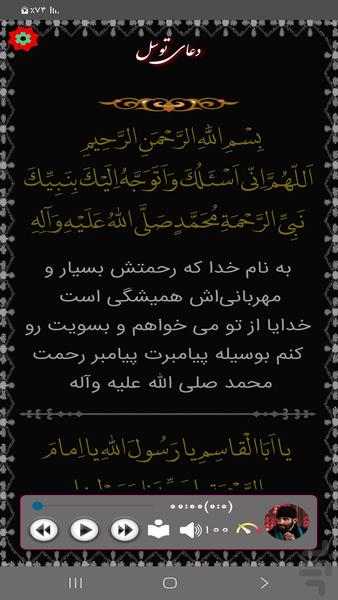 ٪۷۴
دعای توسل
بِسْمِ اللهِ الرَّحْمَنِ الرَّحِیمِ
اَللّهُمَّ اِنّی اَسْئَلُكَ وَ اَتَوَجَّهُ اِلَیْكَ بِنَبِیِّكَ
نَبِیِّ الرَّحْمَةِ مُحَمَّدٍ صَلَّی اللهُ عَلَیْهِ وَ آلِهِ
به نام خدا که رحمتش بسیار و
مهربانی‌اش همیشگی است
خدایا از تو می خواهم و بسویت رو
کنم بوسیله پیامبرت پیامبر رحمت
محمد صلی الله علیه وآله
یا اَبَا الْقاسِمِ یا رَسُولَ اللهِ یا اِمامَ
الرَّحْمَةِ
۰۰:۰۰(۰:۰)
۱۰۰